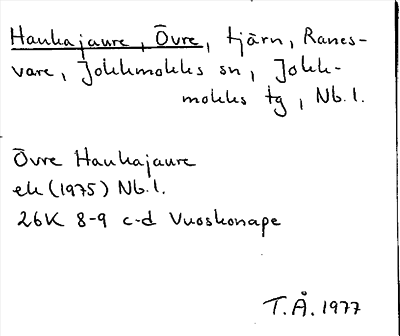 Haukajaure, Övre, tjärn, Ranes-
vare, Jokkmokks sn, Jokk-
mokks tg, Nb. l.
Övre Haukajaure
ek (1975) Nb. l.
26K 8-9 c-d Vuoskonape
T.Å. 1977